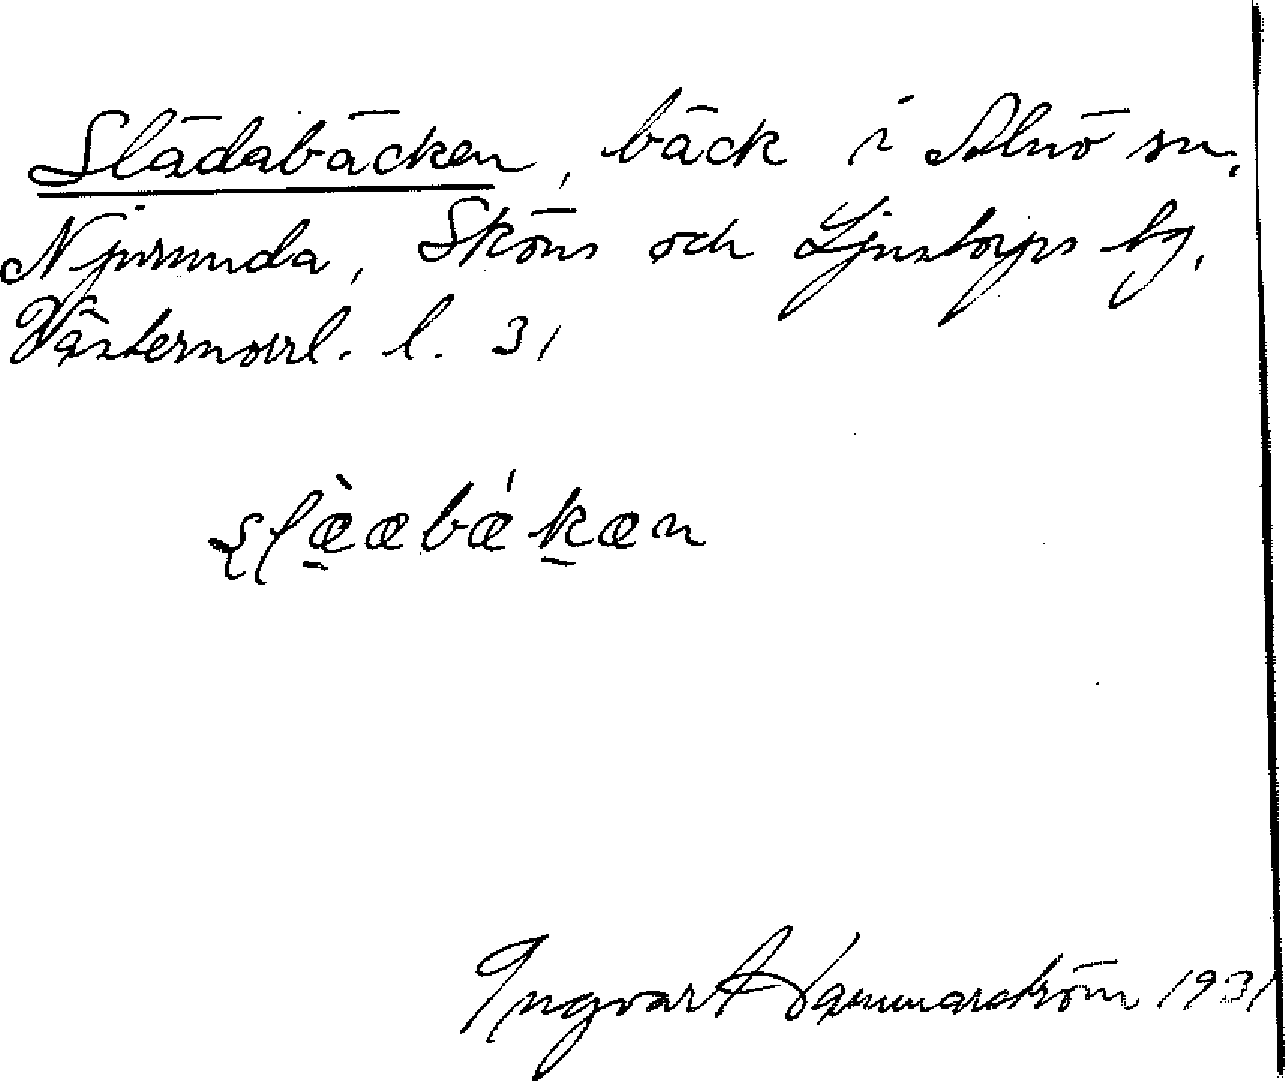 Slädabäcken, bäck i Alnö sn,
Njurunda, Sköns och Ljustorps tg,
Västernorrl. l. 31
slæ̀æbækæn
Ingvar Hammarström 1931